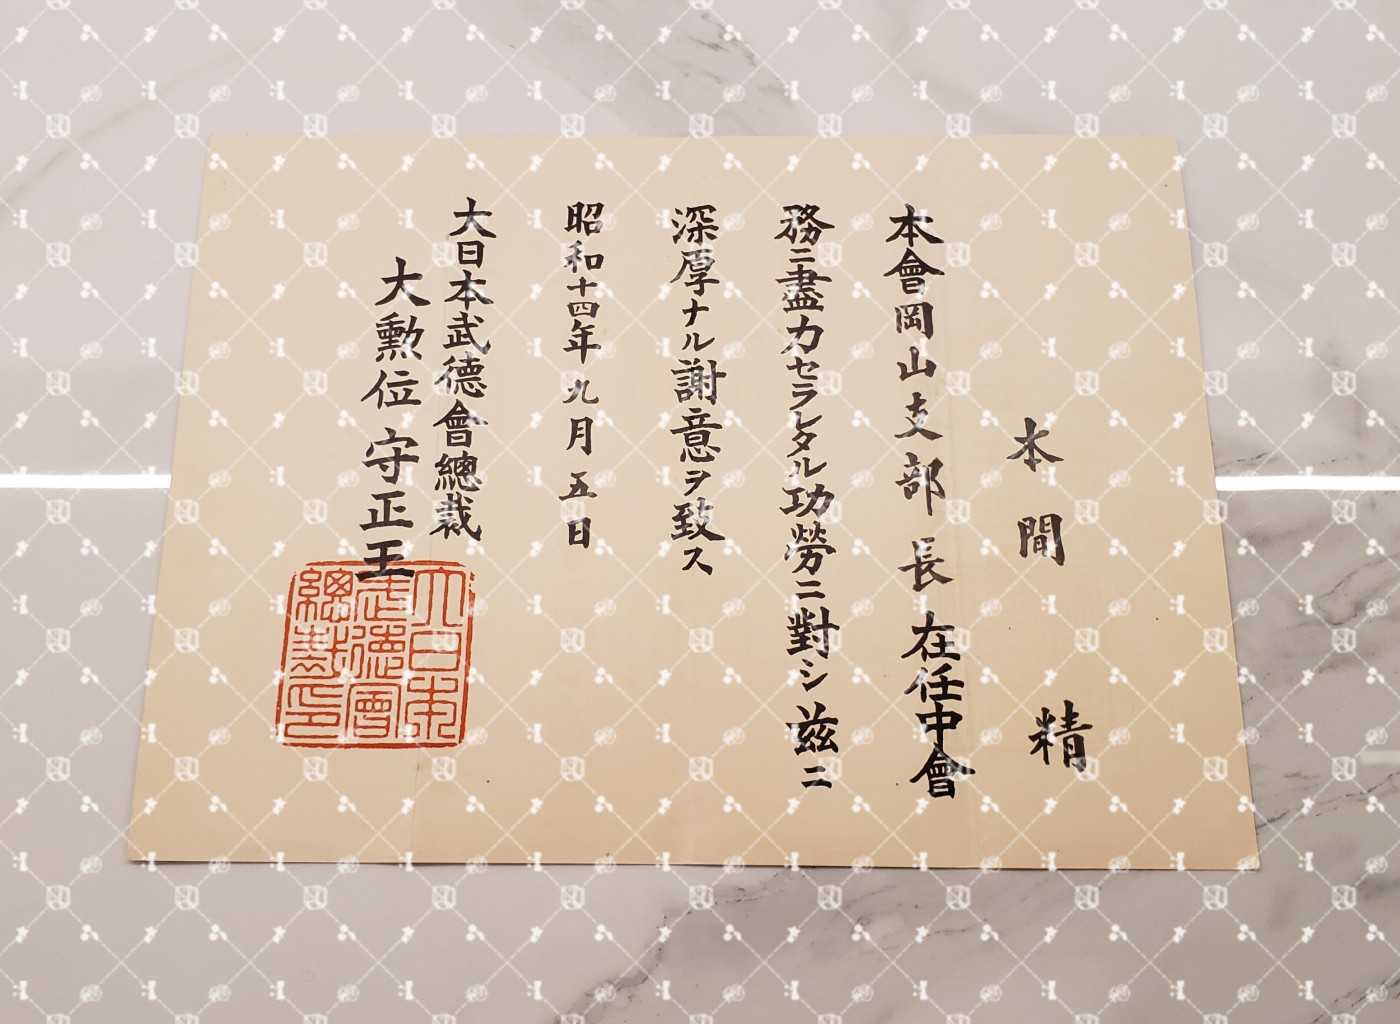 本間精
本會岡山支部長在任中會
務ニ盡力セラレタル功勞ニ對シ茲ニ
深厚ナル謝意ヲ致ス
昭和十四年九月五日
大日本武德會總裁
大勲位守正王
大日本
武德會
總裁印